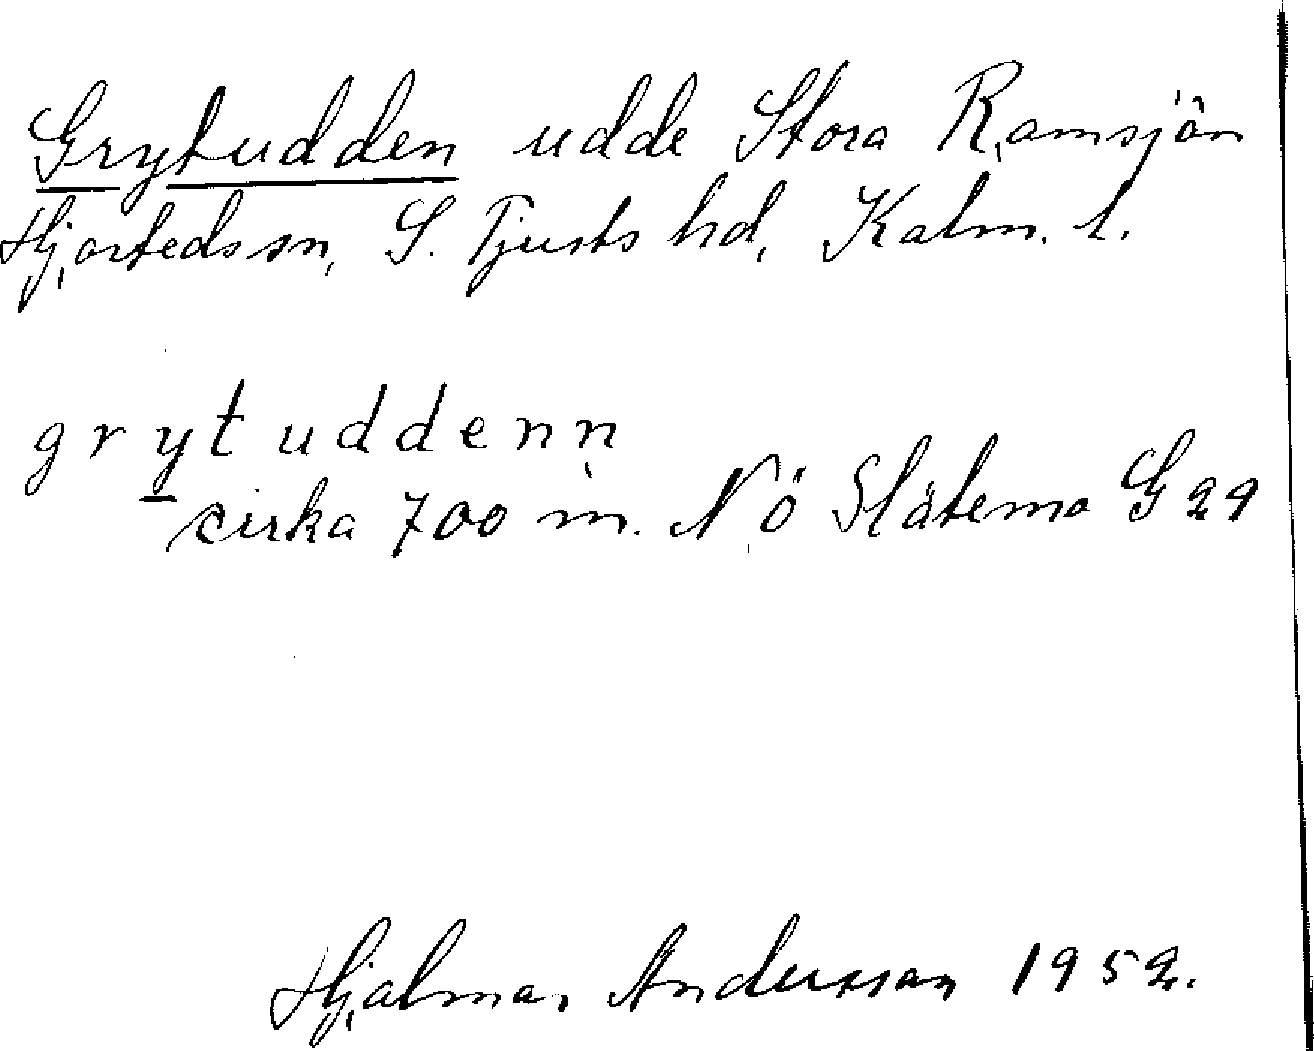 Grytudden udde Stora Ramsjön
Hjorteds sn, S. Tjusts hd, Kalm. l.
grytuddenn
cirka 700 m. NÖ Slätemo G 29
Hjalmar Andersson 1952.